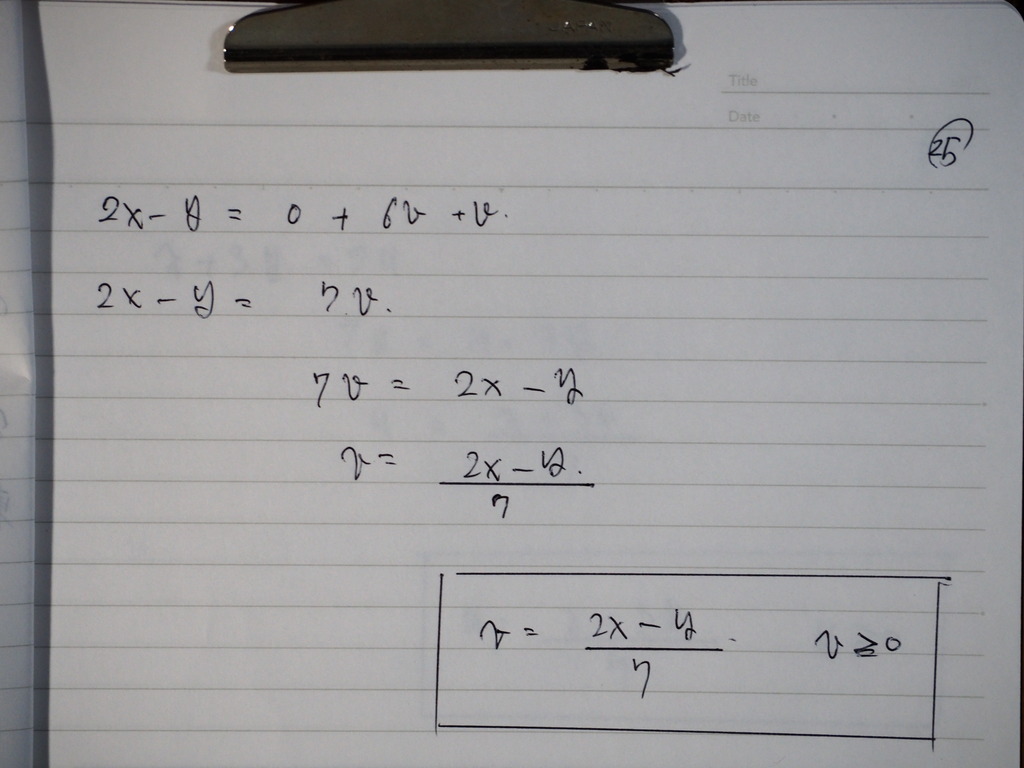 Title
Date
25
2x - y = 0 + 6v + v.
2x - y = 7v.
7v = 2x - y
v = 2x - y.
7
v = 2x - y. v ≥ 0
7